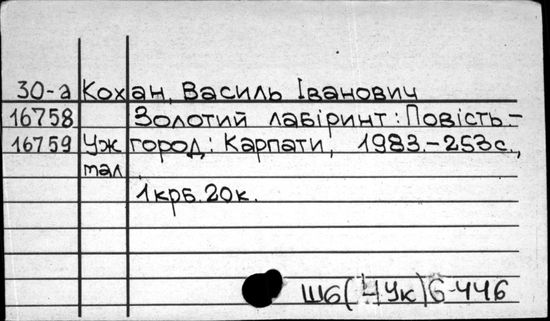 30-а Кохан, Василь Іванович
16758 Золотий лабіринт: Повість.-
16759 Ужгород: Карпати, 1983.-253с.,
тал.
1крб.20к.
Ш6(4Ук)6-446